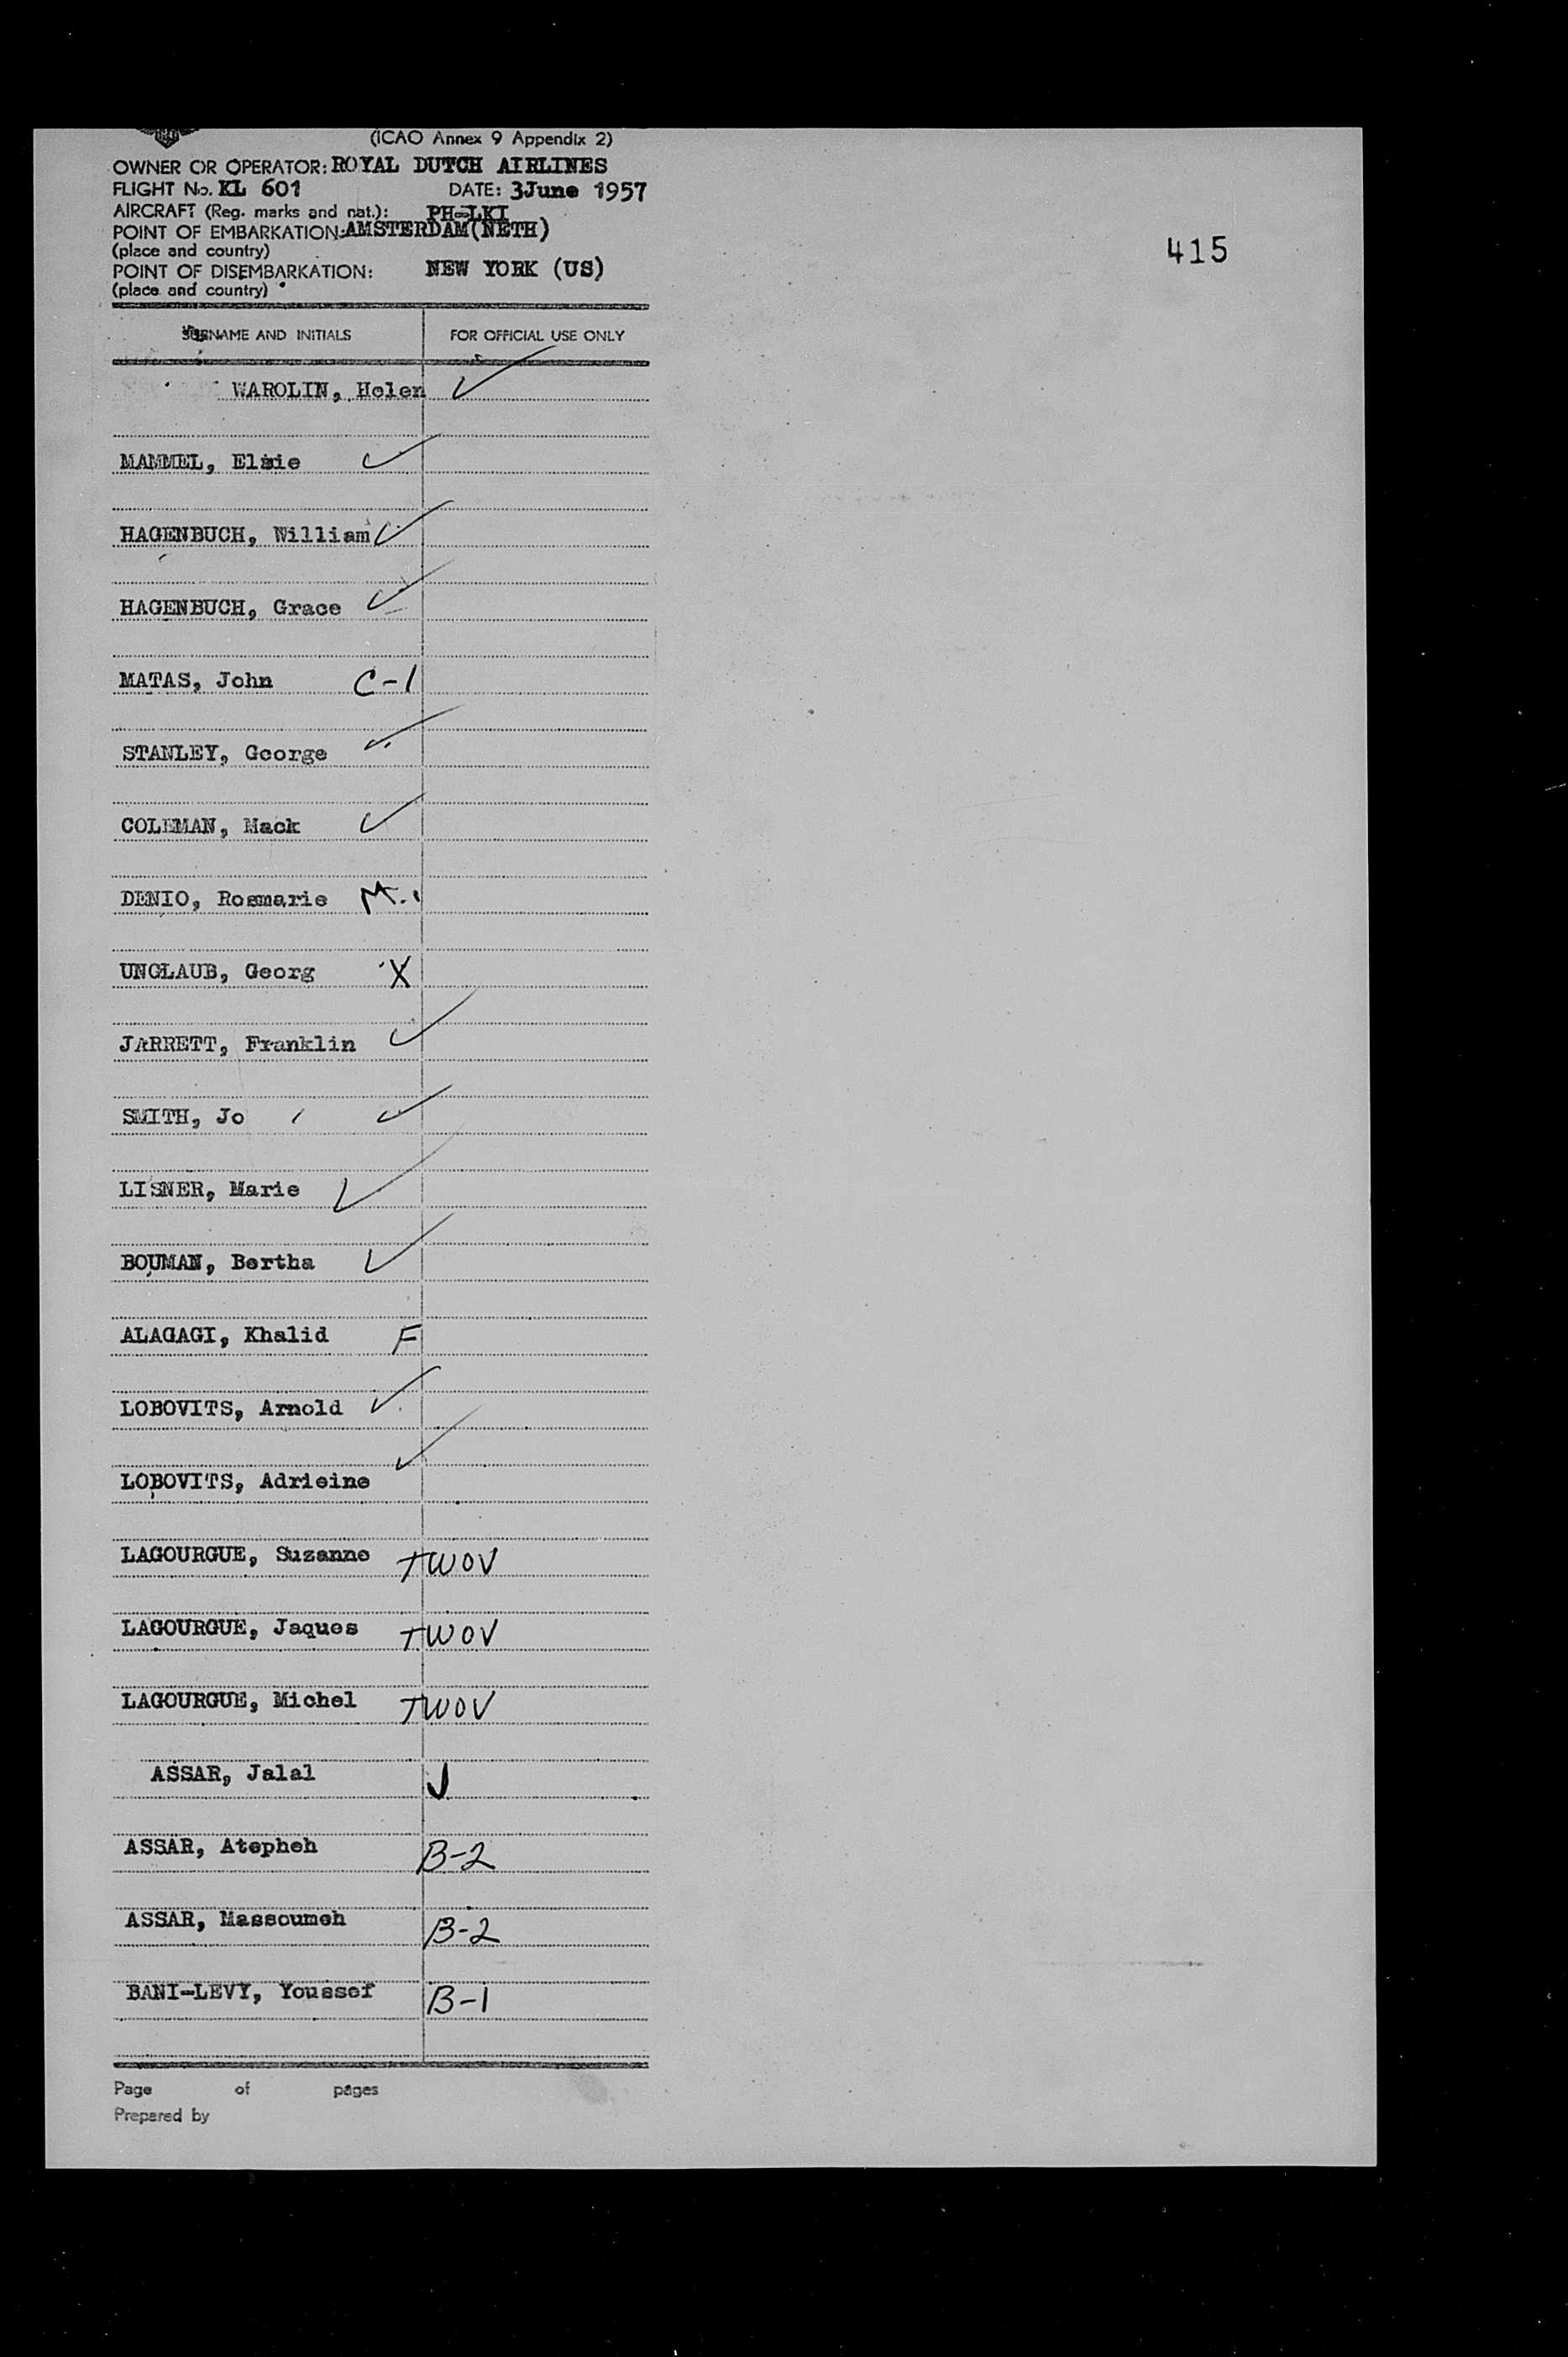 (ICAO Annex 9 Appendix 2)
OWNER OR OPERATOR: ROYAL DUTCH AIRLINES
FLIGHT No. KL 601 DATE: 3June 1957
AIRCRAFT (Reg. marks and nat.): PH-LKI
POINT OF EMBARKATION: AMSTERDAM(NETH)
(place and country)
415
POINT OF DISEMBARKATION: NEW YORK (US)
(place and country)
SURNAME AND INITIALS FOR OFFICIAL USE ONLY
WAROLIN, Helen ✓
MAMMEL, Elsie ✓
HAGENBUCH, William ✓
HAGENBUCH, Grace ✓
MATAS, John C-1
STANLEY, George ✓
COLEMAN, Mack ✓
DENIO, Rosmarie
UNGLAUB, Georg X
JARRETT, Franklin ✓
SMITH, Jo ✓
LISNER, Marie ✓
BOUMAN, Bertha ✓
ALAGAGI, Khalid F
LOBOVITS, Arnold ✓
LOBOVITS, Adrieine ✓
LAGOURGUE, Suzanne TWOV
LAGOURGUE, Jaques TWOV
LAGOURGUE, Michel TWOV
ASSAR, Jalal J
ASSAR, Atepheh B-2
ASSAR, Massoumeh B-2
BANI-LEVY, Youssef B-1
Page of pages
Prepared by